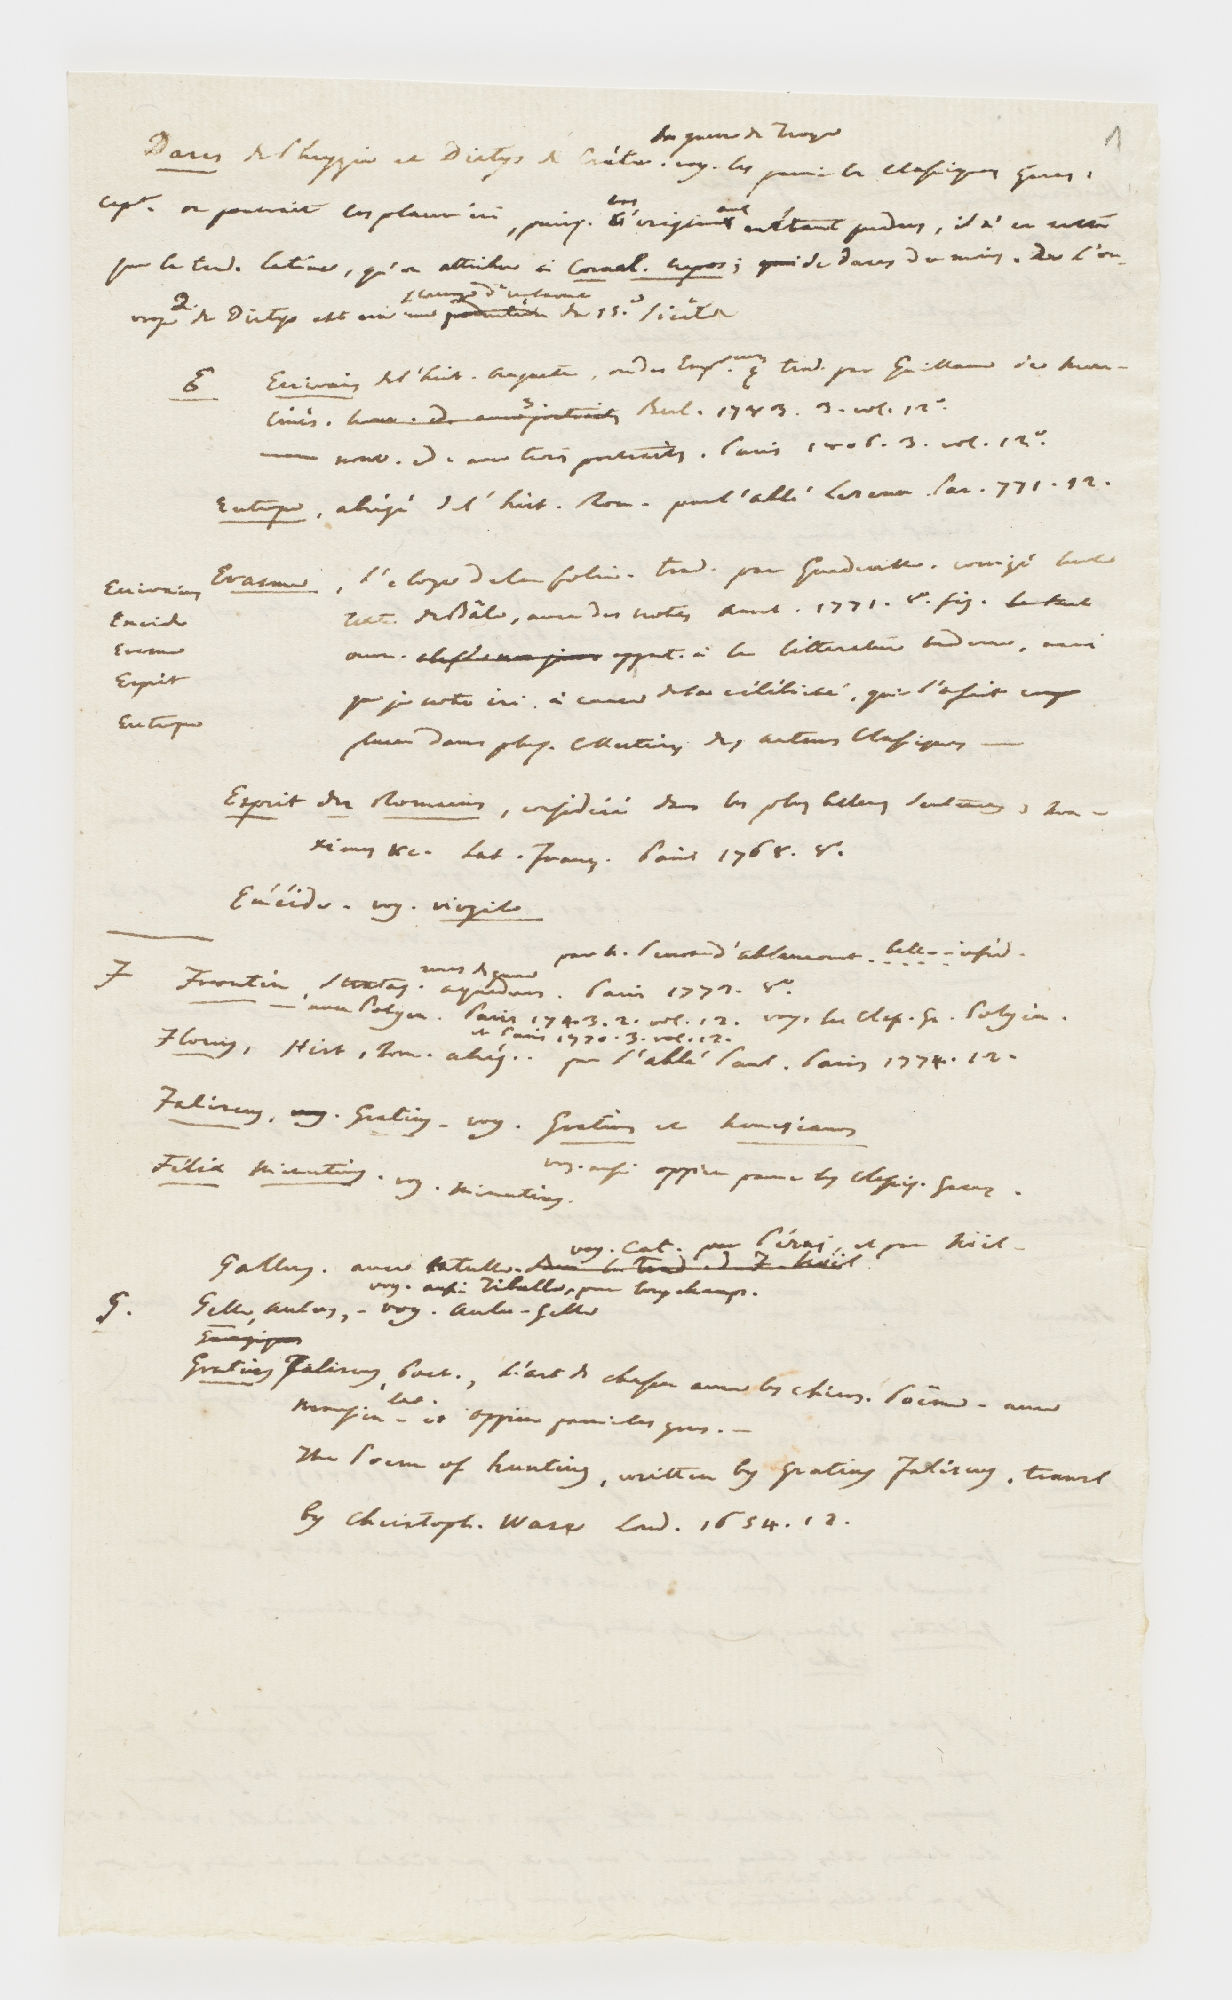 1
la guerre de Troye
Dares de Phrygie et Dictys de Crète. voy. les parmi les classiques grecs,
cept. on pourroit les placer ici, puisq. les origin. étant perdus, il n'en reste
que la trad. latine, qu'on attribue à Cornel. Nepos; de Dares du moins.
de Dictys est une du 15.e siècle
E Ecrivains de l'hist. auguste, ou des Emp. trad. par Guillaume de Mou-
lines. Berl. 1783. 3. vol. 12°.
— nouv. ed. avec trois portraits. Paris 1806. 3. vol. 12°.
Eutrope, abrégé de l'hist. Rom. par l'abbé Lezeau. Par. 771. 12.
Ecrivains
Eneide
Erasme
Esprit
Eutrope
Erasme, l'eloge de la folie. trad. par Gueudeville. corrigé sur le
texte de Bâle, avec des notes Amst. 1771. 8. fig.
ouvr. appart. à la litterature moderne, mais
que je note ici à cause de sa célébrité, qui l'a fait
placer dans plus. collections des auteurs classiques —
Esprit des Romains, considéré dans les plus belles sentences, Ma-
ximes &c. Lat. Franç. Paris 1768. 8.
Enéide. voy. virgile
par N. Perrot d'ablancourt.
F Frontin, Stratag. aqueducs. Paris 1772. 8°.
— avec Polyen. Paris 1743. 2. vol. 12. voy. les Class. Gr. Polyen.
et Paris 1770. 3. vol. 12.
Florus, Hist. Rom. abrég. par l'abbé Paul. Paris 1774. 12.
Faliscus, Gratius. voy. Gratius et Nemesianus
voy. aussi oppien parmi les Classiq. Grecs.
Félix Minutius. voy. Minutius.
voy. Cat. par Pézay, et par Noël
Gallus. avec Catulle.
voy. aussi Tibulle, par Longchamps.
G. Gelle, Aulus, - voy. Aulu-Gelle
Gratius Faliscus, Poet., L'art de chasser avec les chiens. Poëme. avec
Nemesien lat. et oppien parmi les grecs. —
The Poem of hunting, written by Gratius Faliscus, transl
by Christoph. Wase Lond. 1654. 12.